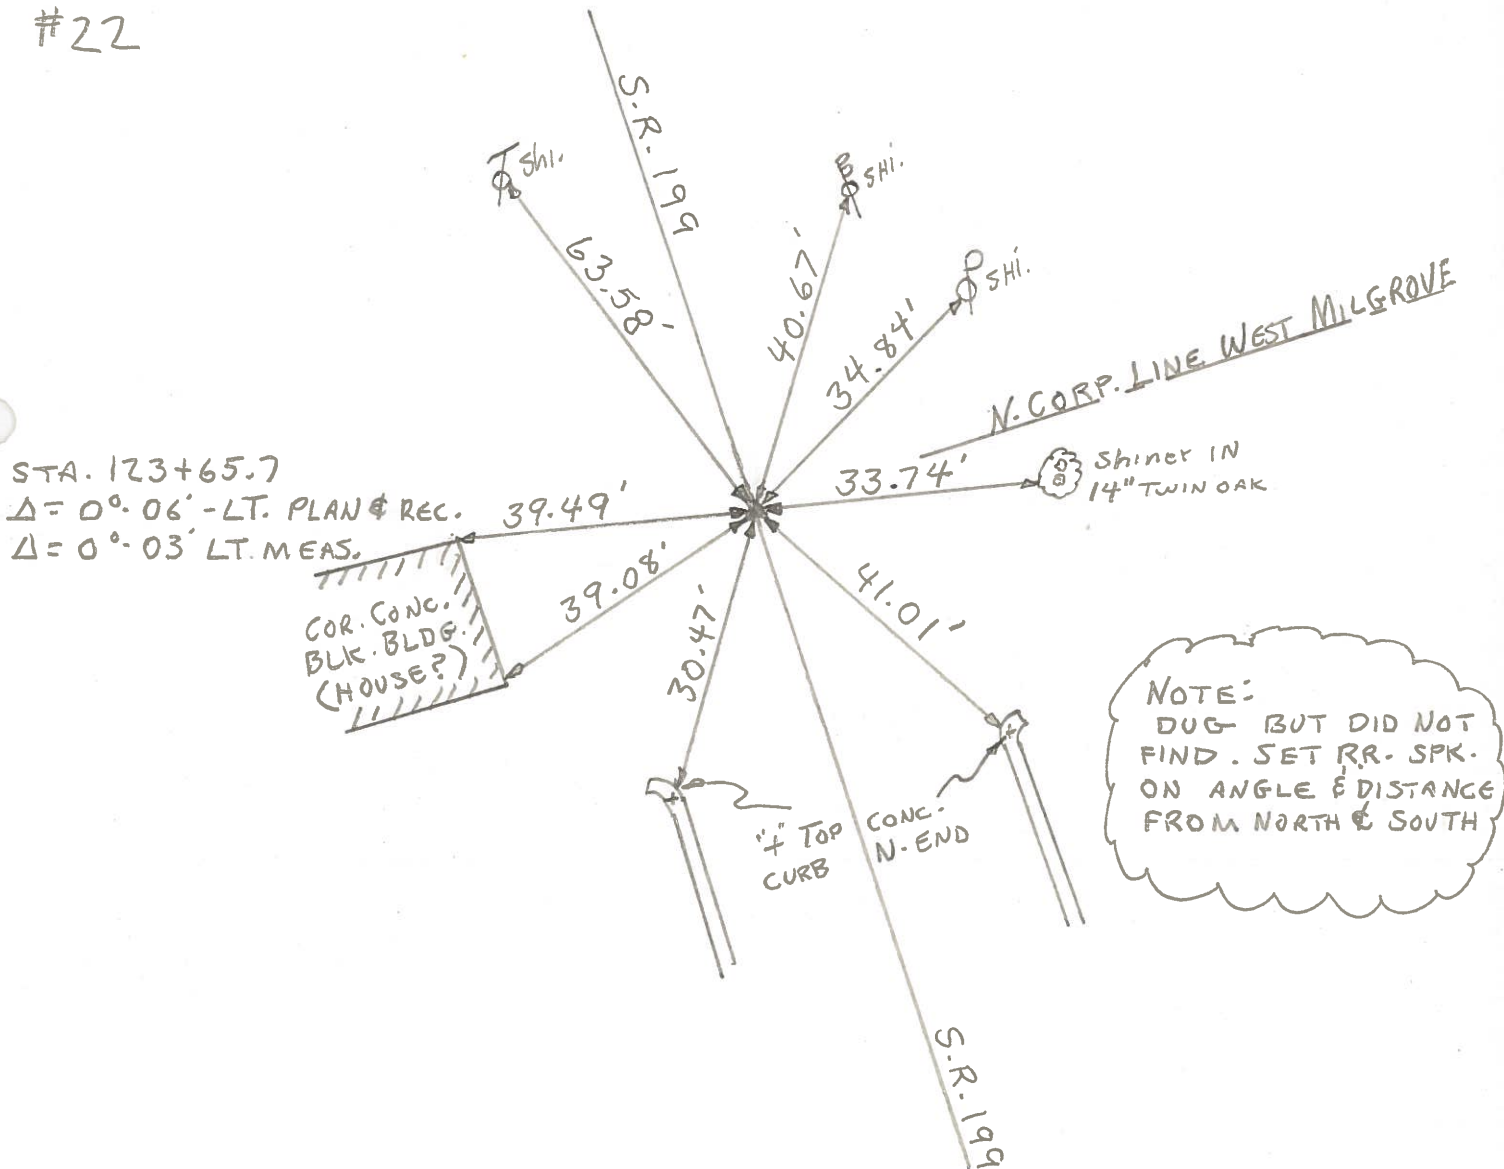 #22
S.R. 199
shi.
SHI.
SHI.
63.58'
40.67'
34.84'
N. CORP. LINE WEST MILGROVE
33.74'
Shiner IN
14" TWIN OAK
STA. 123+65.7
Δ= 0°-06' -LT. PLAN & REC.
Δ= 0°-03' LT. MEAS.
39.49'
39.08'
COR. CONC.
BLK. BLDG.
(HOUSE?)
30.47'
41.01'
"+" TOP CONC.
CURB N. END
NOTE:
DUG BUT DID NOT
FIND. SET RR. SPK.
ON ANGLE & DISTANCE
FROM NORTH & SOUTH
S.R. 199